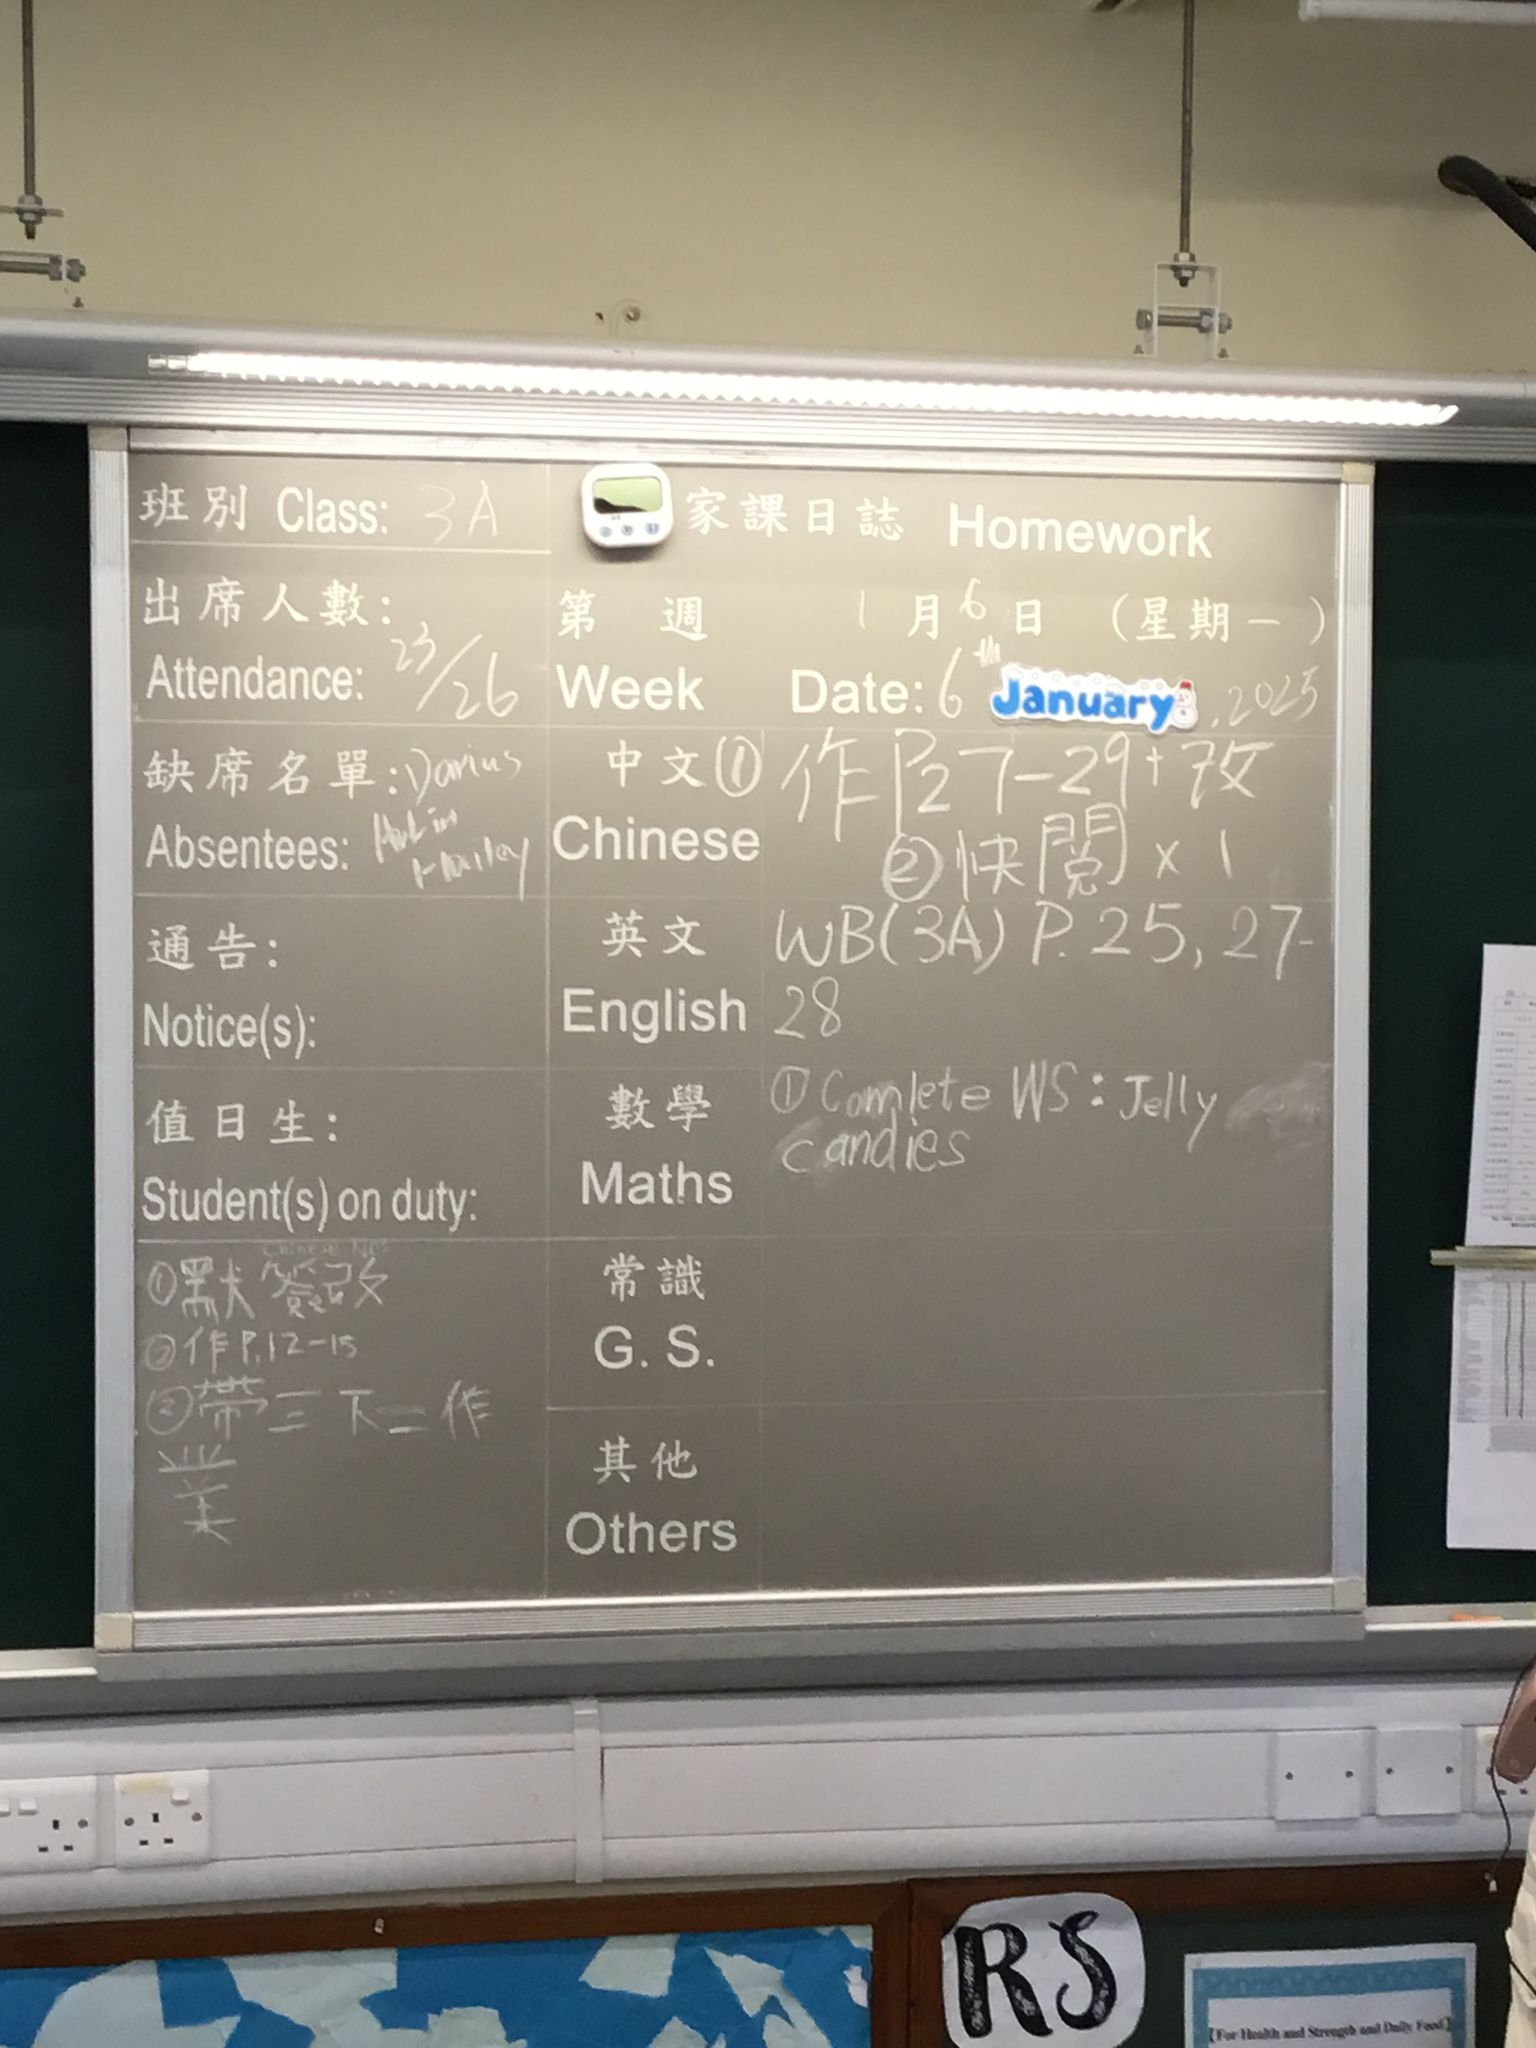 班別 Class: 3A
家課日誌 Homework
出席人數:
Attendance: 23/26
第 週 1月6日 (星期一)
Week Date: 6th January, 2025
缺席名單: Darius
Absentees:
Hailey
中文 ① 作P27-29+改
Chinese ② 快閱 x 1
通告:
Notice(s):
英文 WB(3A) P. 25, 27-
English 28
值日生:
Student(s) on duty:
數學 ① Comlete WS: Jelly
candies
Maths
①默 簽改
②作P.12-15
③帶三下二作
業
常識
G. S.
其他
Others
RS
【For Health and Strength and Daily Food】